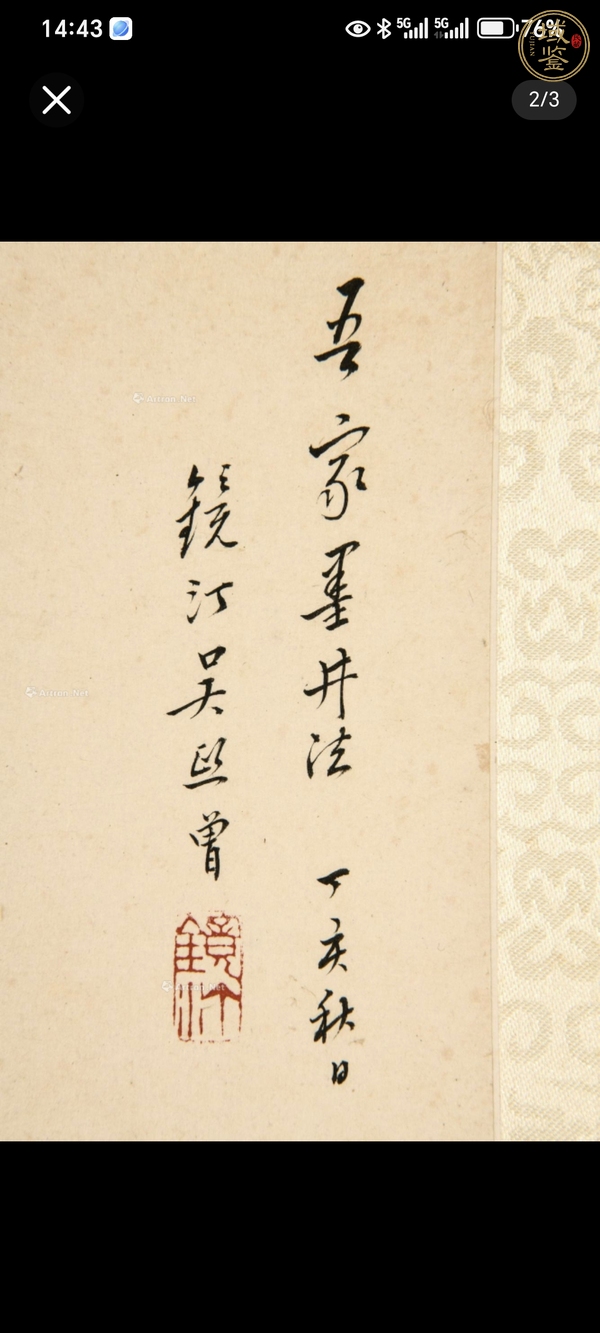 14:43
5G
5G
76%
域鉴
2/3
吾家墨井法 丁亥秋日
鏡汀吴熙曾
鏡汀
Artron.Net
Artron.Net
Artron.Net